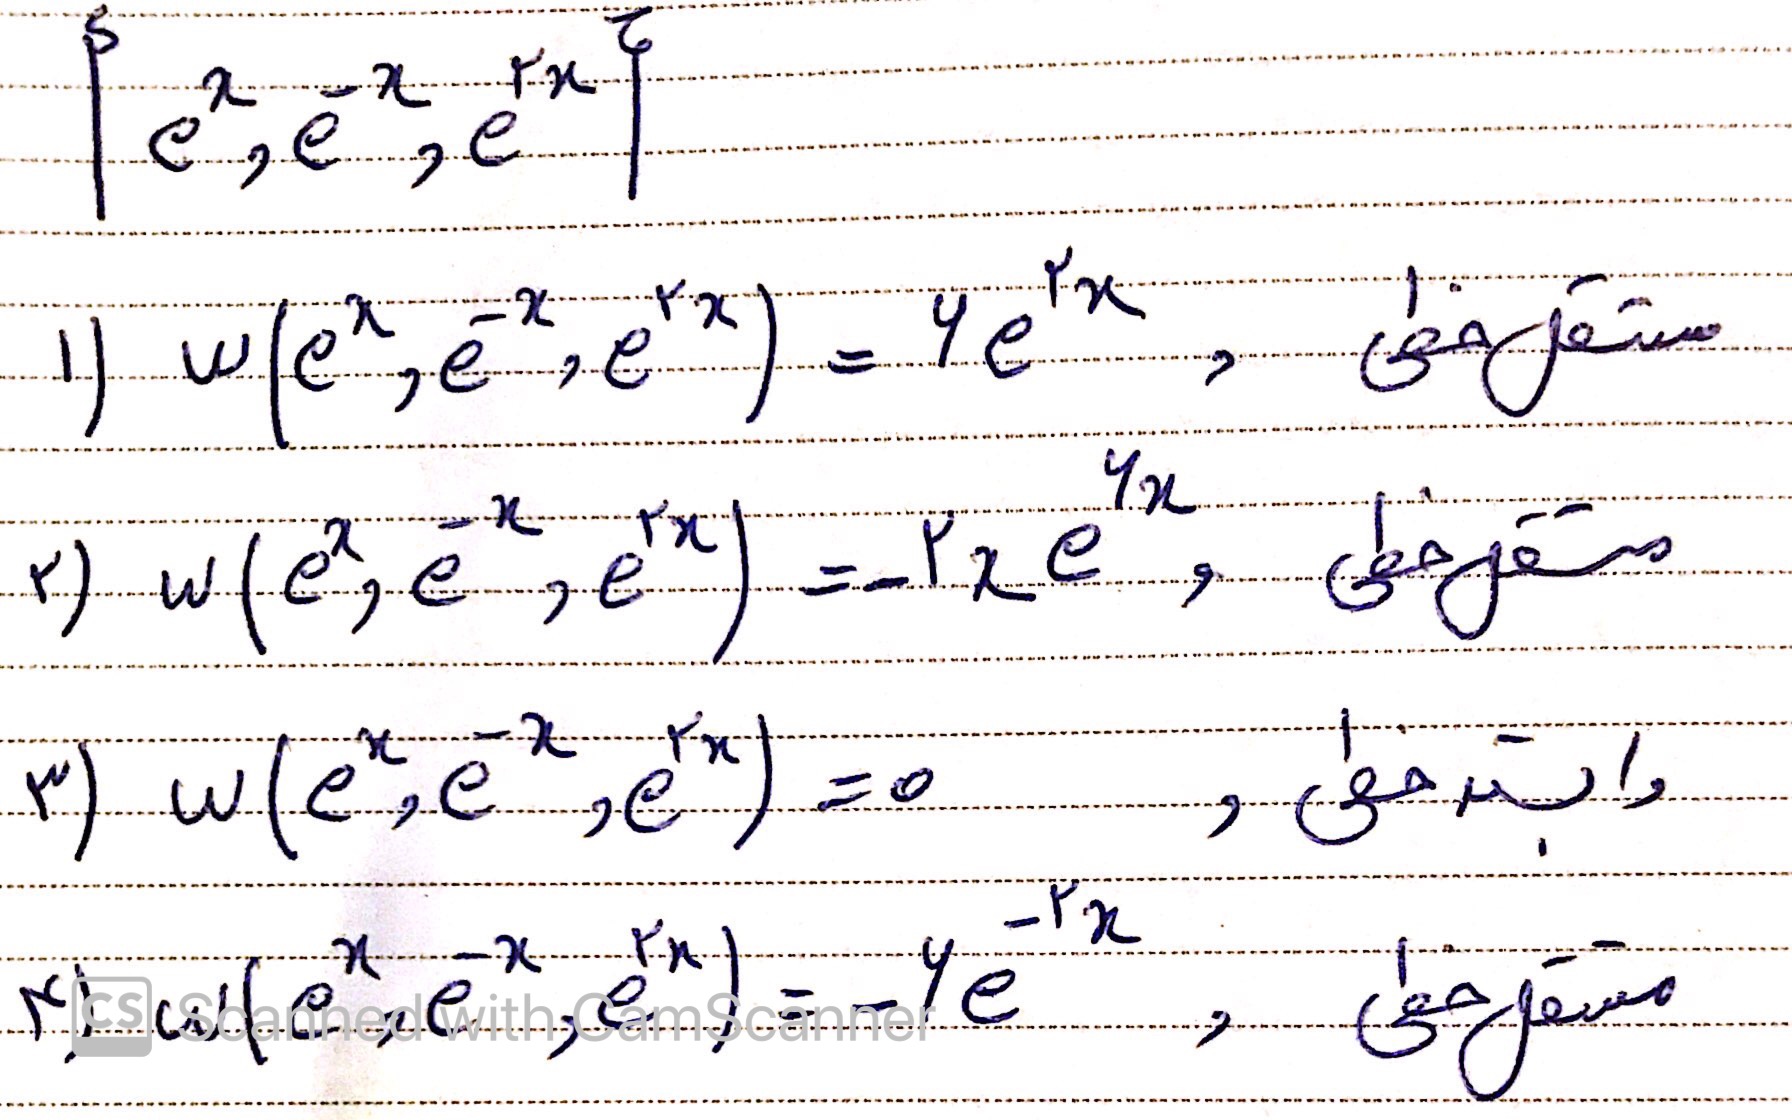 {e^x, e^-x, e^۲x}
۱) w(e^x, e^-x, e^۲x) = ۶e^۲x , مستقل خطی
۲) w(e^x, e^-x, e^۲x) = -۲x e^۶x , مستقل خطی
۳) w(e^x, e^-x, e^۲x) = 0 , وابسته خطی
۴) w(e^x, e^-x, e^۲x) = -۶e^-۲x , مستقل خطی
CS Scanned with CamScanner